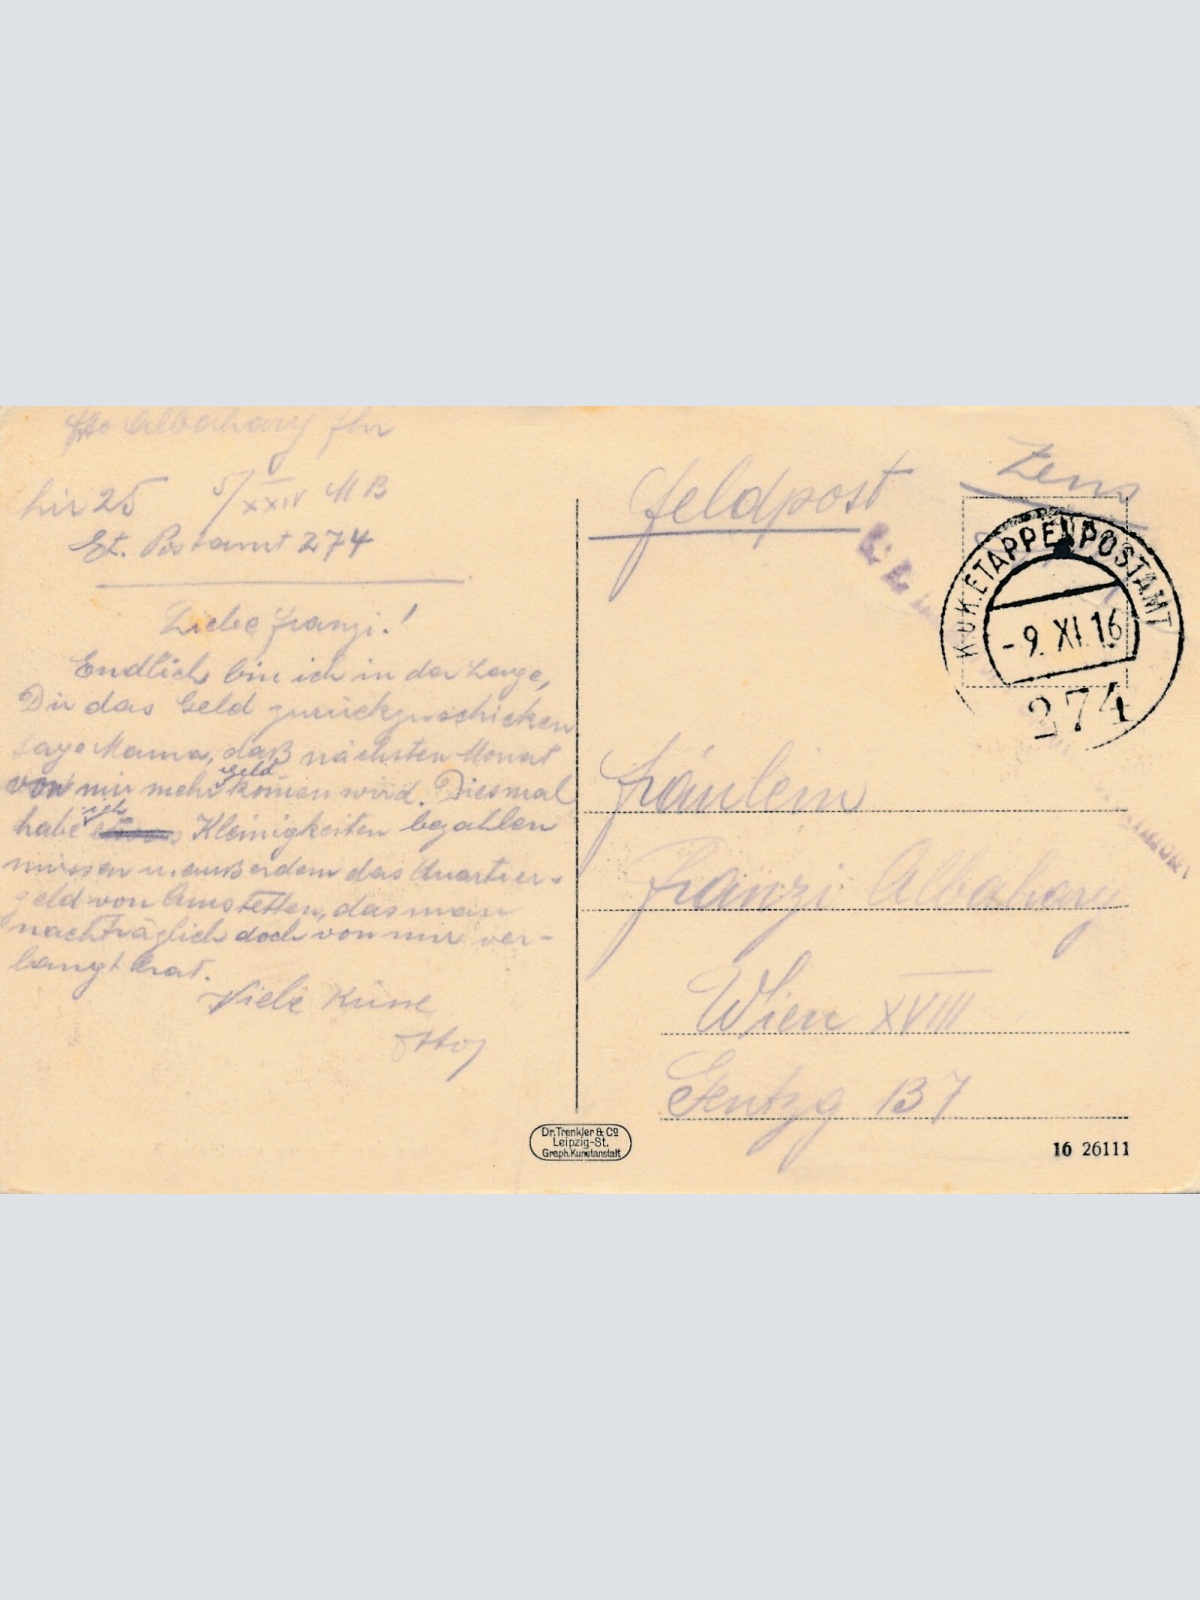 Otto Albahary Fhr
Lir 25 5/XXIV M B
Et. Postamt 274
Liebe Franzi!
Endlich bin ich in der Lage,
Dir das Geld zurückzuschicken
Sage Mama, daß nächsten Monat
von mir mehr Geld kom̄en wird. Diesmal
habe ich Kleinigkeiten bezahlen
müssen u. außerdem das Quartier-
geld von Amstetten, das man
nachträglich doch von mir ver-
langt hat.
Viele Küsse
Otto
Feldpost
Zens
K.u.K. ETAPPENPOSTAMT
-9. XI. 16
274
Fräulein
Franzi Albahary
Wien XVIII
Gentzg 137
Dr. Trenkler & Co
Leipzig-St.
Graph. Kunstanstalt
16 26111